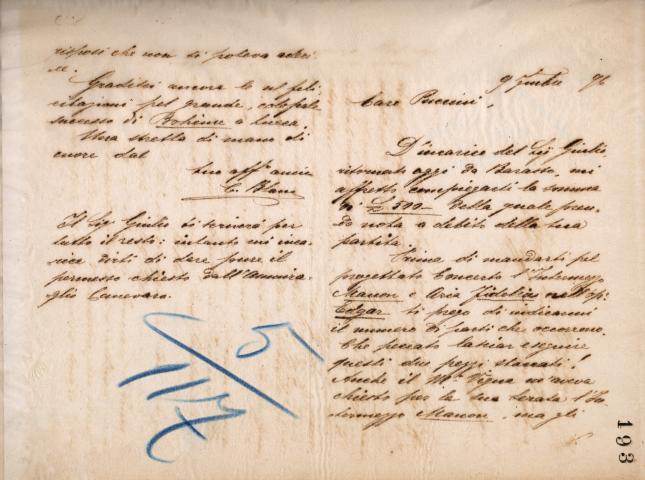 9 9mbre 96
Caro Puccini,
D'incarico del Sig Giulio,
ritornato oggi da Barasso, mi
affretto compiegarti la somma
di £ 500 – della quale pren-
do nota a debito della tua
partita.
Prima di mandarti pel
progettato Concerto l'Intermezzo
Manon e Aria Fidelia nell'op:
Edgar ti prego di indicarmi
il numero di parti che occorrono.
Che peccato lasciar eseguire
questi due pezzi staccati!
Anche il Mo Vigna mi aveva
chiesto per la sua serata l'In-
termezzo Manon, ma gli
risposi che non si poteva aderi-
re.
Gradisci ancora le
felicitazioni pel grande, colossale
successo di Bohème a Lucca.
Una stretta di mano di
cuore dal
tuo affo amico
C. Blanc
Il Sig Giulio ti scriverà per
tutto il resto: intanto mi inca-
rica dirti di dare pure il
permesso chiesto dall'Ammira-
glio Canevaro.
5
117
193